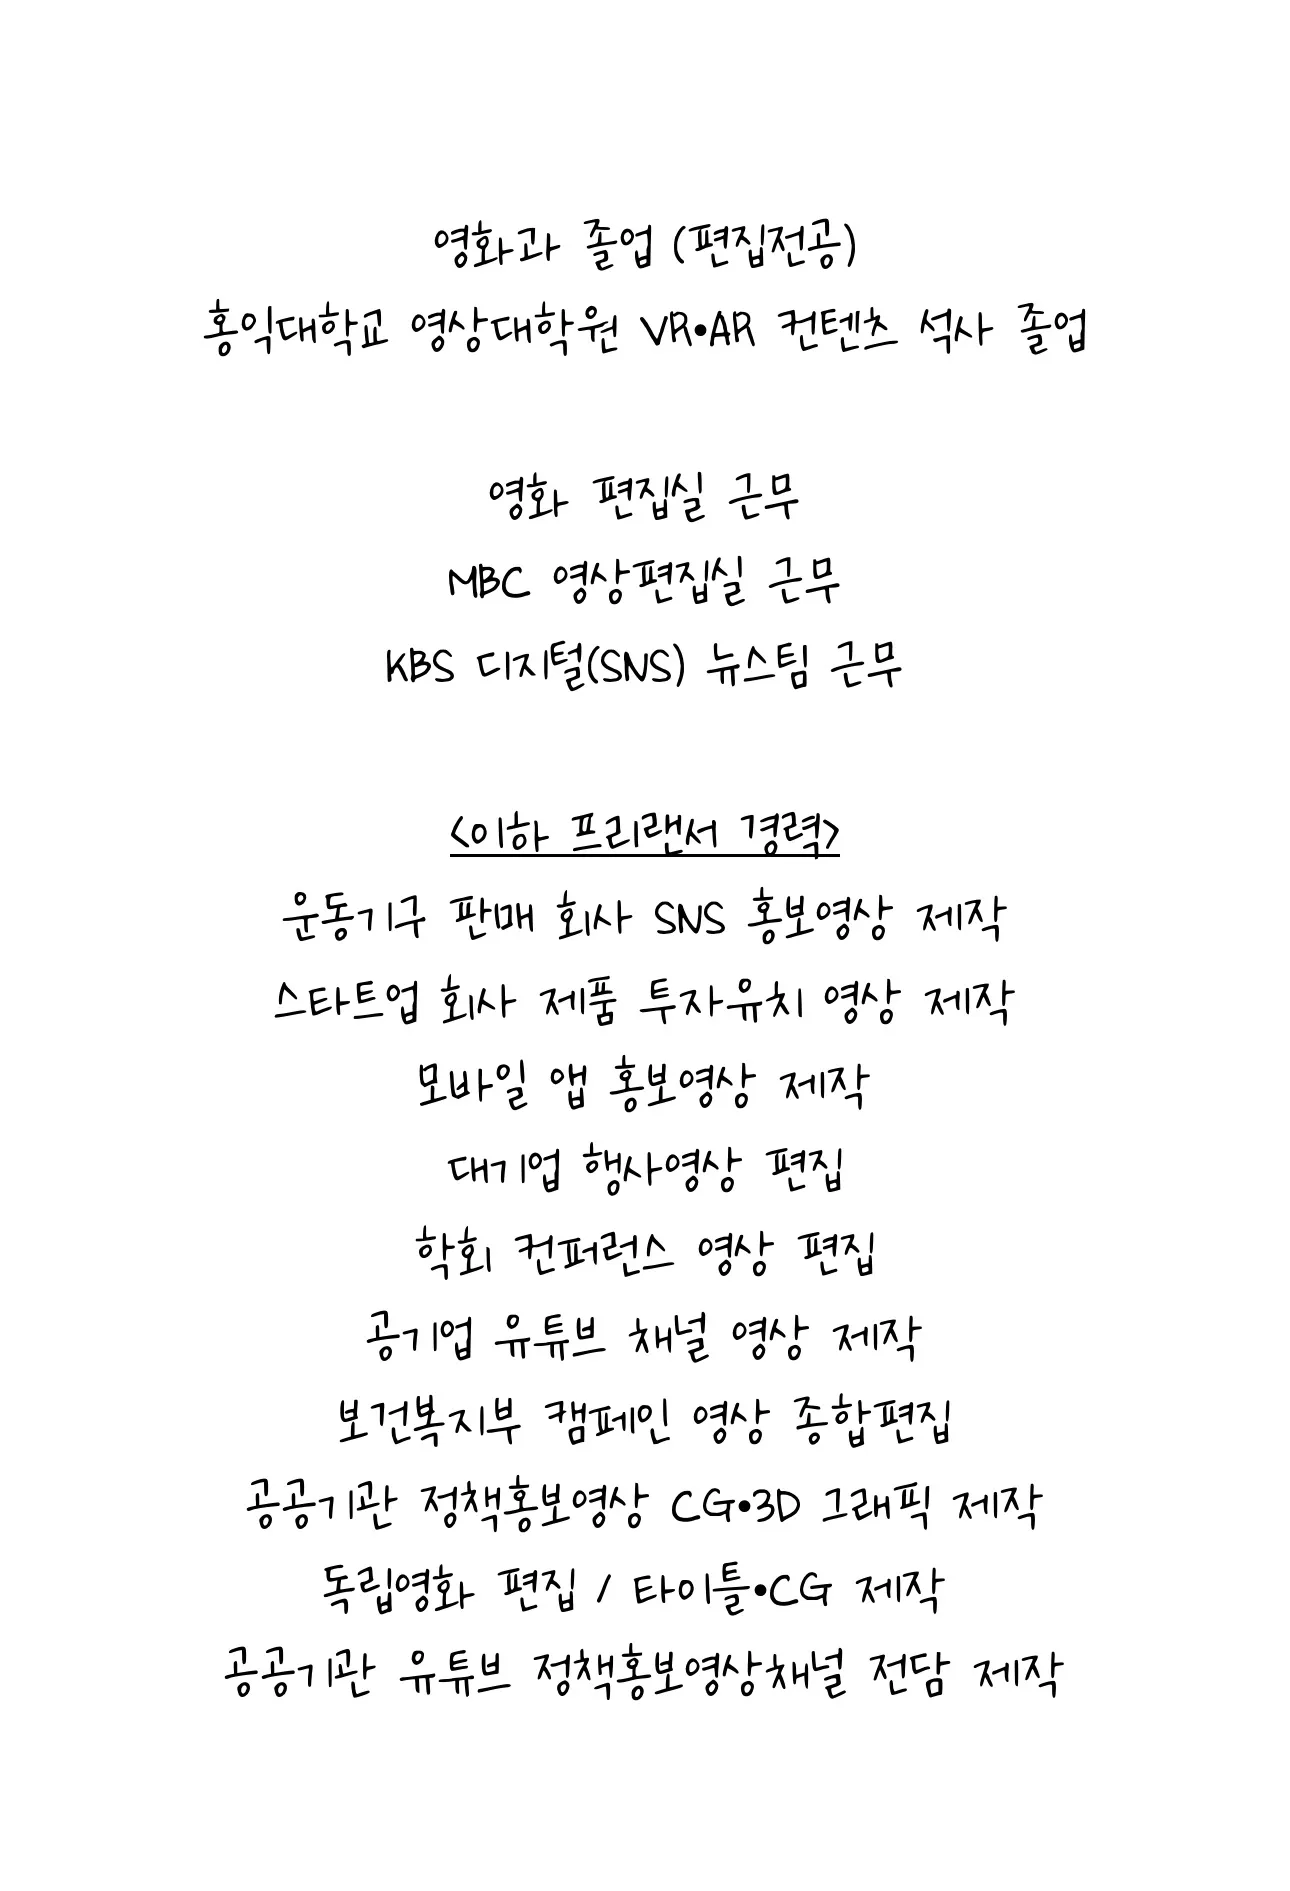 영화과 졸업 (편집전공)
홍익대학교 영상대학원 VR•AR 컨텐츠 석사 졸업
영화 편집실 근무
MBC 영상편집실 근무
KBS 디지털(SNS) 뉴스팀 근무
<이하 프리랜서 경력>
운동기구 판매 회사 SNS 홍보영상 제작
스타트업 회사 제품 투자유치 영상 제작
모바일 앱 홍보영상 제작
대기업 행사영상 편집
학회 컨퍼런스 영상 편집
공기업 유튜브 채널 영상 제작
보건복지부 캠페인 영상 종합편집
공공기관 정책홍보영상 CG•3D 그래픽 제작
독립영화 편집 / 타이틀•CG 제작
공공기관 유튜브 정책홍보영상채널 전담 제작